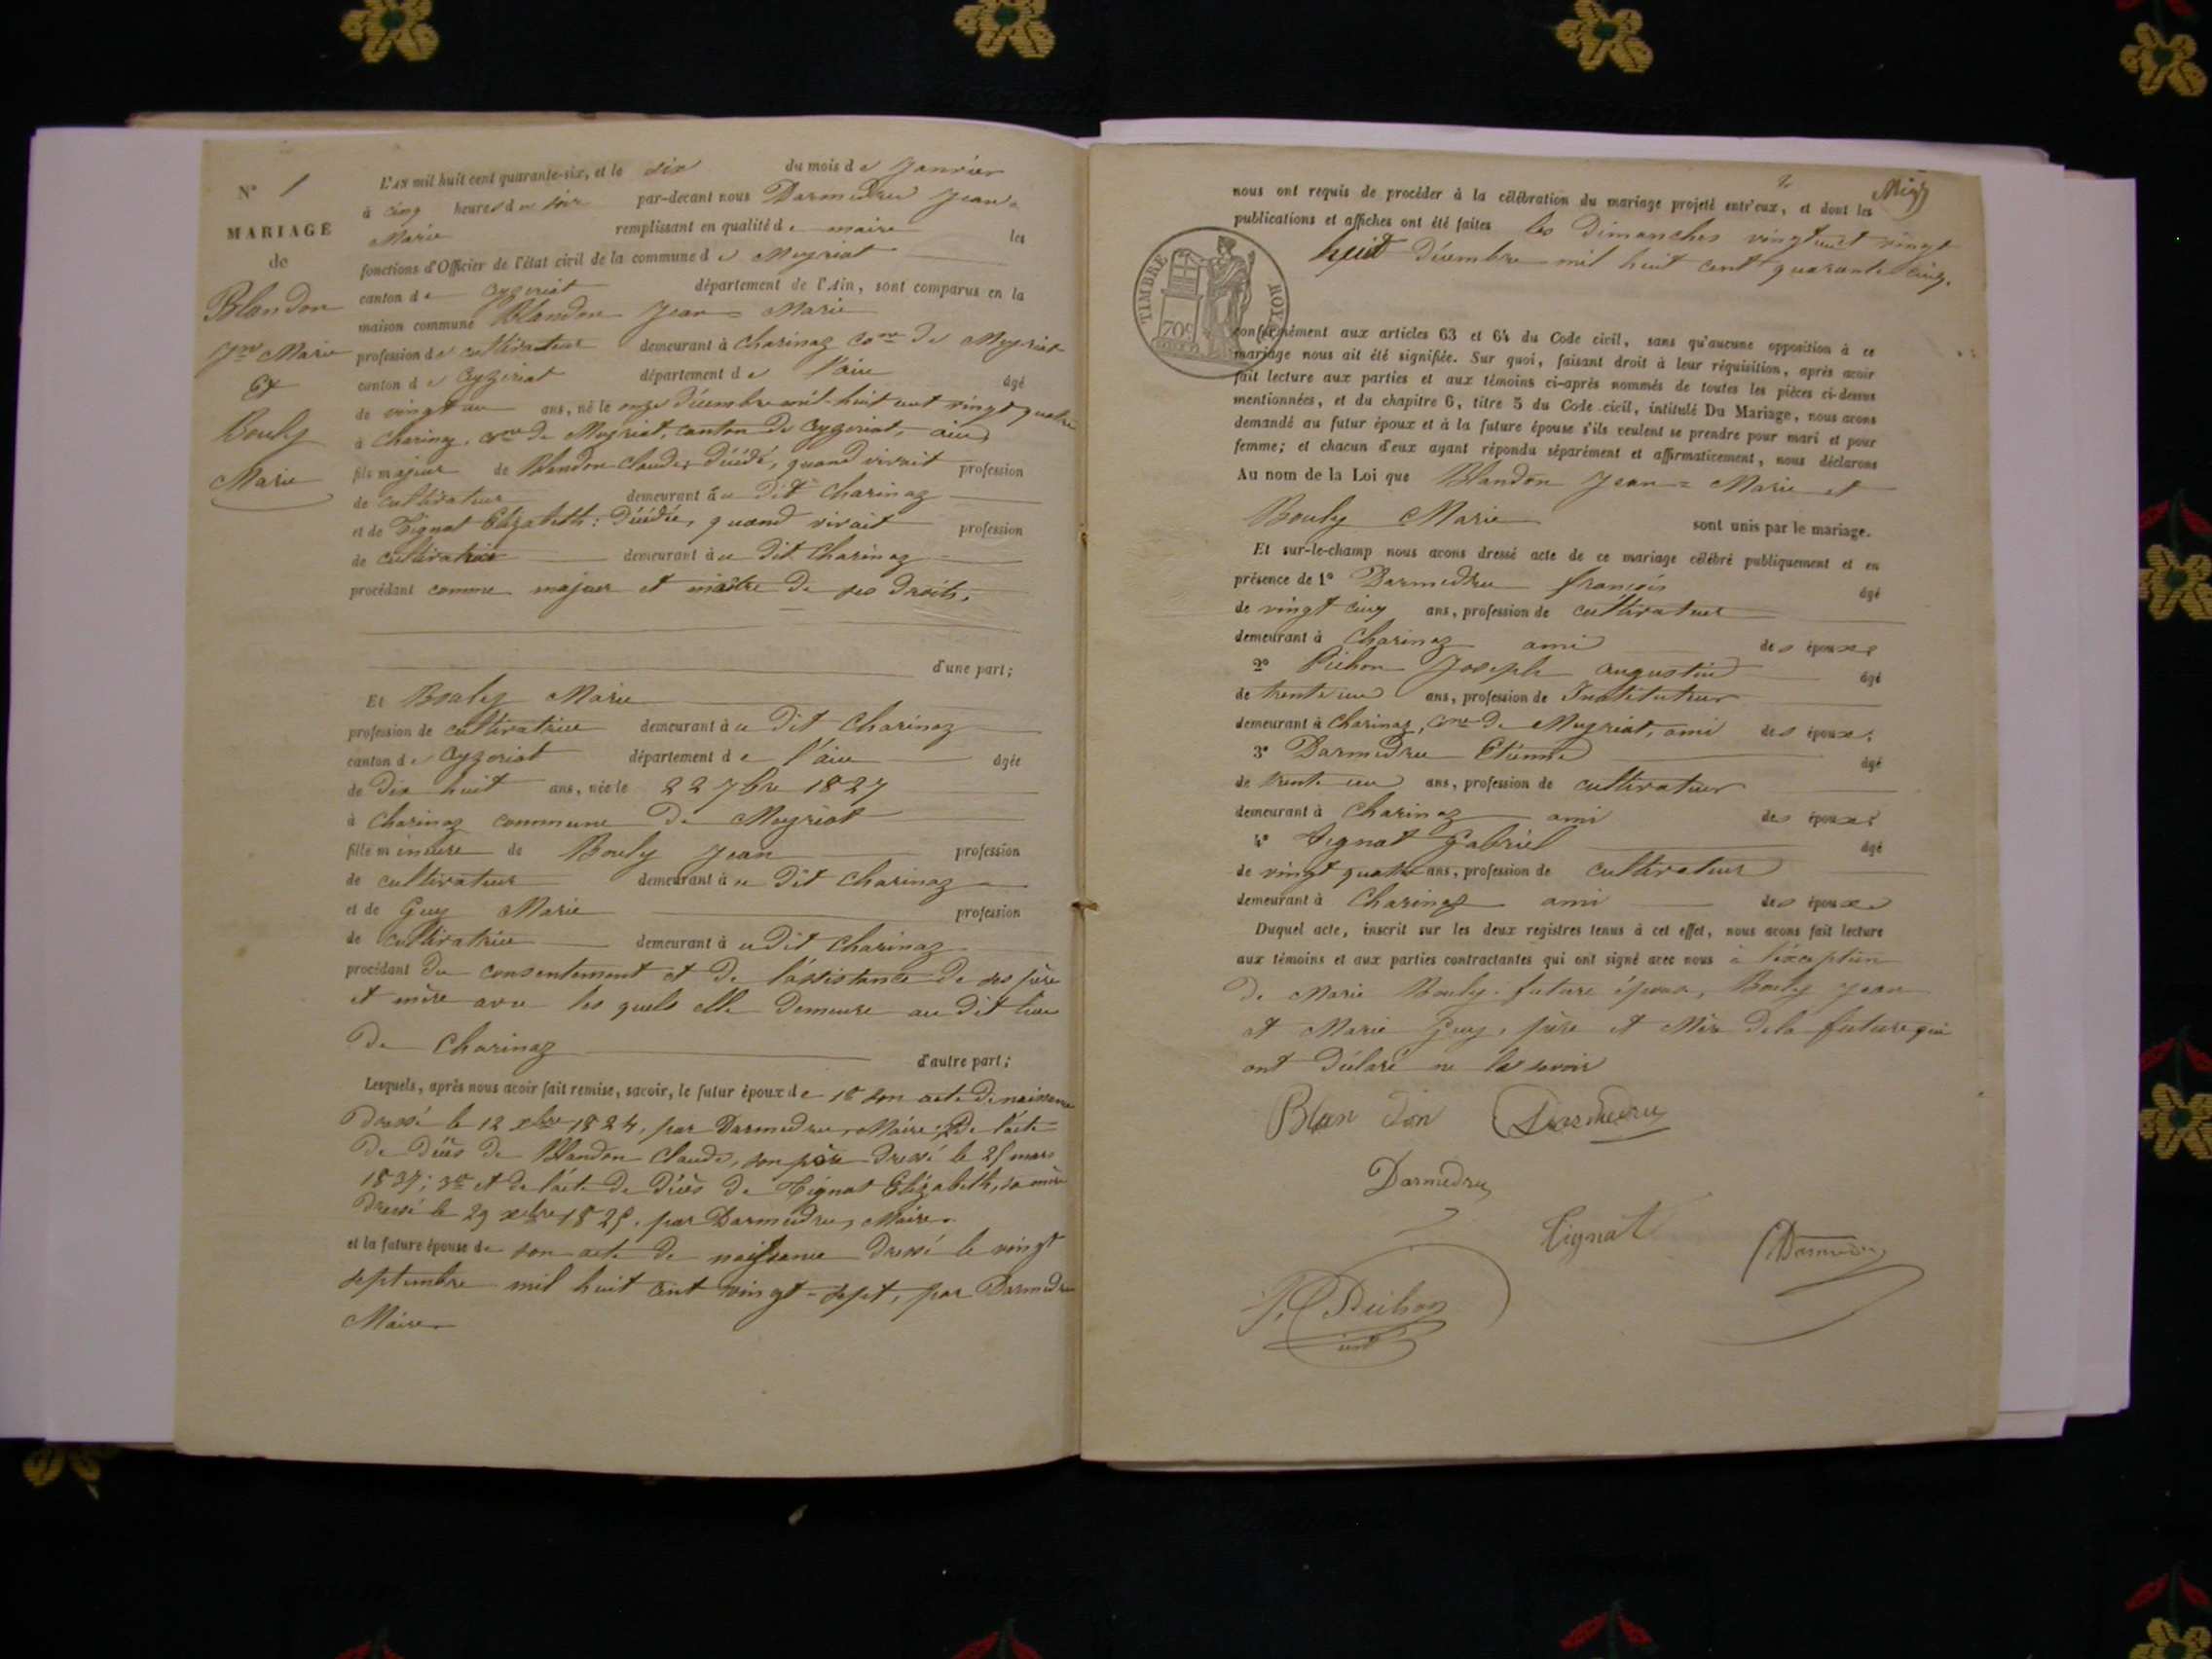 N° 1
MARIAGE
de
Blandon
Jn Marie
Et
Bouly
Marie
L'AN mil huit cent quarante-six, et le six du mois de Janvier
à cinq heures du soir par-devant nous Darmedru Jean=
Marie remplissant en qualité de maire les
fonctions d'Officier de l'état civil de la commune de Meyriat
canton de Ceyzeriat département de l'Ain, sont comparus en la
maison commune Blandon Jean=Marie
profession de cultivateur demeurant à Charinaz Cne de Meyriat
canton de Ceyzeriat département de l'ain âgé
de vingt un ans, né le onze Décembre mil-huit cent vingt quatre
à Charinaz, Cne de Meyriat, canton de Ceyzeriat, ain
fils majeur de Blandon Claude, Décédé, quand vivait profession
de Cultivateur demeurant au Dit Charinaz
et de Tignat Elizabeth: Décédée, quand vivait profession
de Cultivatrice demeurant au Dit Charinaz
procédant comme majeur et maître de ses Droits,
d'une part;
Et Bouly Marie
profession de cultivatrice demeurant au Dit Charinaz
canton de Ceyzeriat département de l'ain âgée
de Dix huit ans, née le 22 7bre 1827
à Charinaz commune De Meyriat
fille mineure de Bouly Jean profession
de cultivateur demeurant au Dit Charinaz
et de Guy Marie profession
de cultivatrice demeurant à u Dit Charinaz
procédant du consentement et de l'assistance de ses père
et mère avec les quels elle Demeure au Dit lieu
De Charinaz d'autre part;
Lesquels, après nous avoir fait remise, savoir, le futur époux de 1° son acte De naissance
Dressé le 12 xbre 1824, par Darmedru, Maire; 2° De l'acte
De Décès De Blandon Claude, son père Dressé le 25 mars
1837; 3° et de l'acte De Décès De Tignat Elizabeth, sa mère
Dressé le 29 xbre 1825, par Darmedru, Maire.
et la future épouse de son acte De naissance Dressé le vingt
septembre mil huit cent vingt-sept, par Darmedru
Maire
nous ont requis de procéder à la célébration du mariage projeté entr'eux, et dont les
publications et affiches ont été faites les Dimanches vingt un et vingt
huit Décembre mil huit cent quarante cinq.
TIMBRE ROYAL
70c
conformément aux articles 63 et 64 du Code civil, sans qu'aucune opposition à ce
mariage nous ait été signifiée. Sur quoi, faisant droit à leur réquisition, après avoir
fait lecture aux parties et aux témoins ci-après nommés de toutes les pièces ci-dessus
mentionnées, et du chapitre 6, titre 5 du Code civil, intitulé Du Mariage, nous avons
demandé au futur époux et à la future épouse s'ils veulent se prendre pour mari et pour
femme; et chacun d'eux ayant répondu séparément et affirmativement, nous déclarons
Au nom de la Loi que Blandon Jean=Marie et
Bouly Marie sont unis par le mariage.
Et sur-le-champ nous avons dressé acte de ce mariage célébré publiquement et en
présence de 1° Darmedru françois âgé
de vingt cinq ans, profession de cultivateur
demeurant à Charinaz ami des époux
2° Pichon Joseph augustin âgé
de trente un ans, profession de Instituteur
demeurant à Charinaz, Cne De Meyriat, ami des époux.
3° Darmedru Etienne âgé
de trente un ans, profession de cultivateur
demeurant à Charinaz ami des époux
4° Tignat Gabriel âgé
de vingt quatre ans, profession de cultivateur
demeurant à Charinaz ami des époux
Duquel acte, inscrit sur les deux registres tenus à cet effet, nous avons fait lecture
aux témoins et aux parties contractantes qui ont signé avec nous à l'exception
De Marie Bouly future épouse, Bouly Jean
et Marie Guy, père et Mère De la future qui
ont Déclaré ne le savoir
Blan don Darmedru
Darmedru
Tignat
Darmedru
Pichon
inst